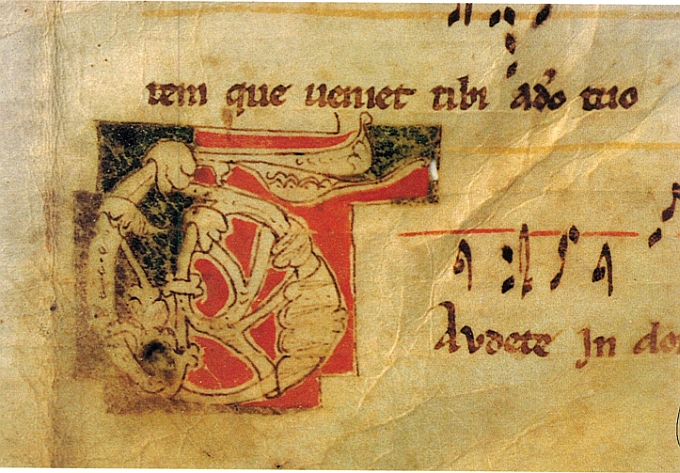 tem que veniet tibi a do tuo
Avdete In do